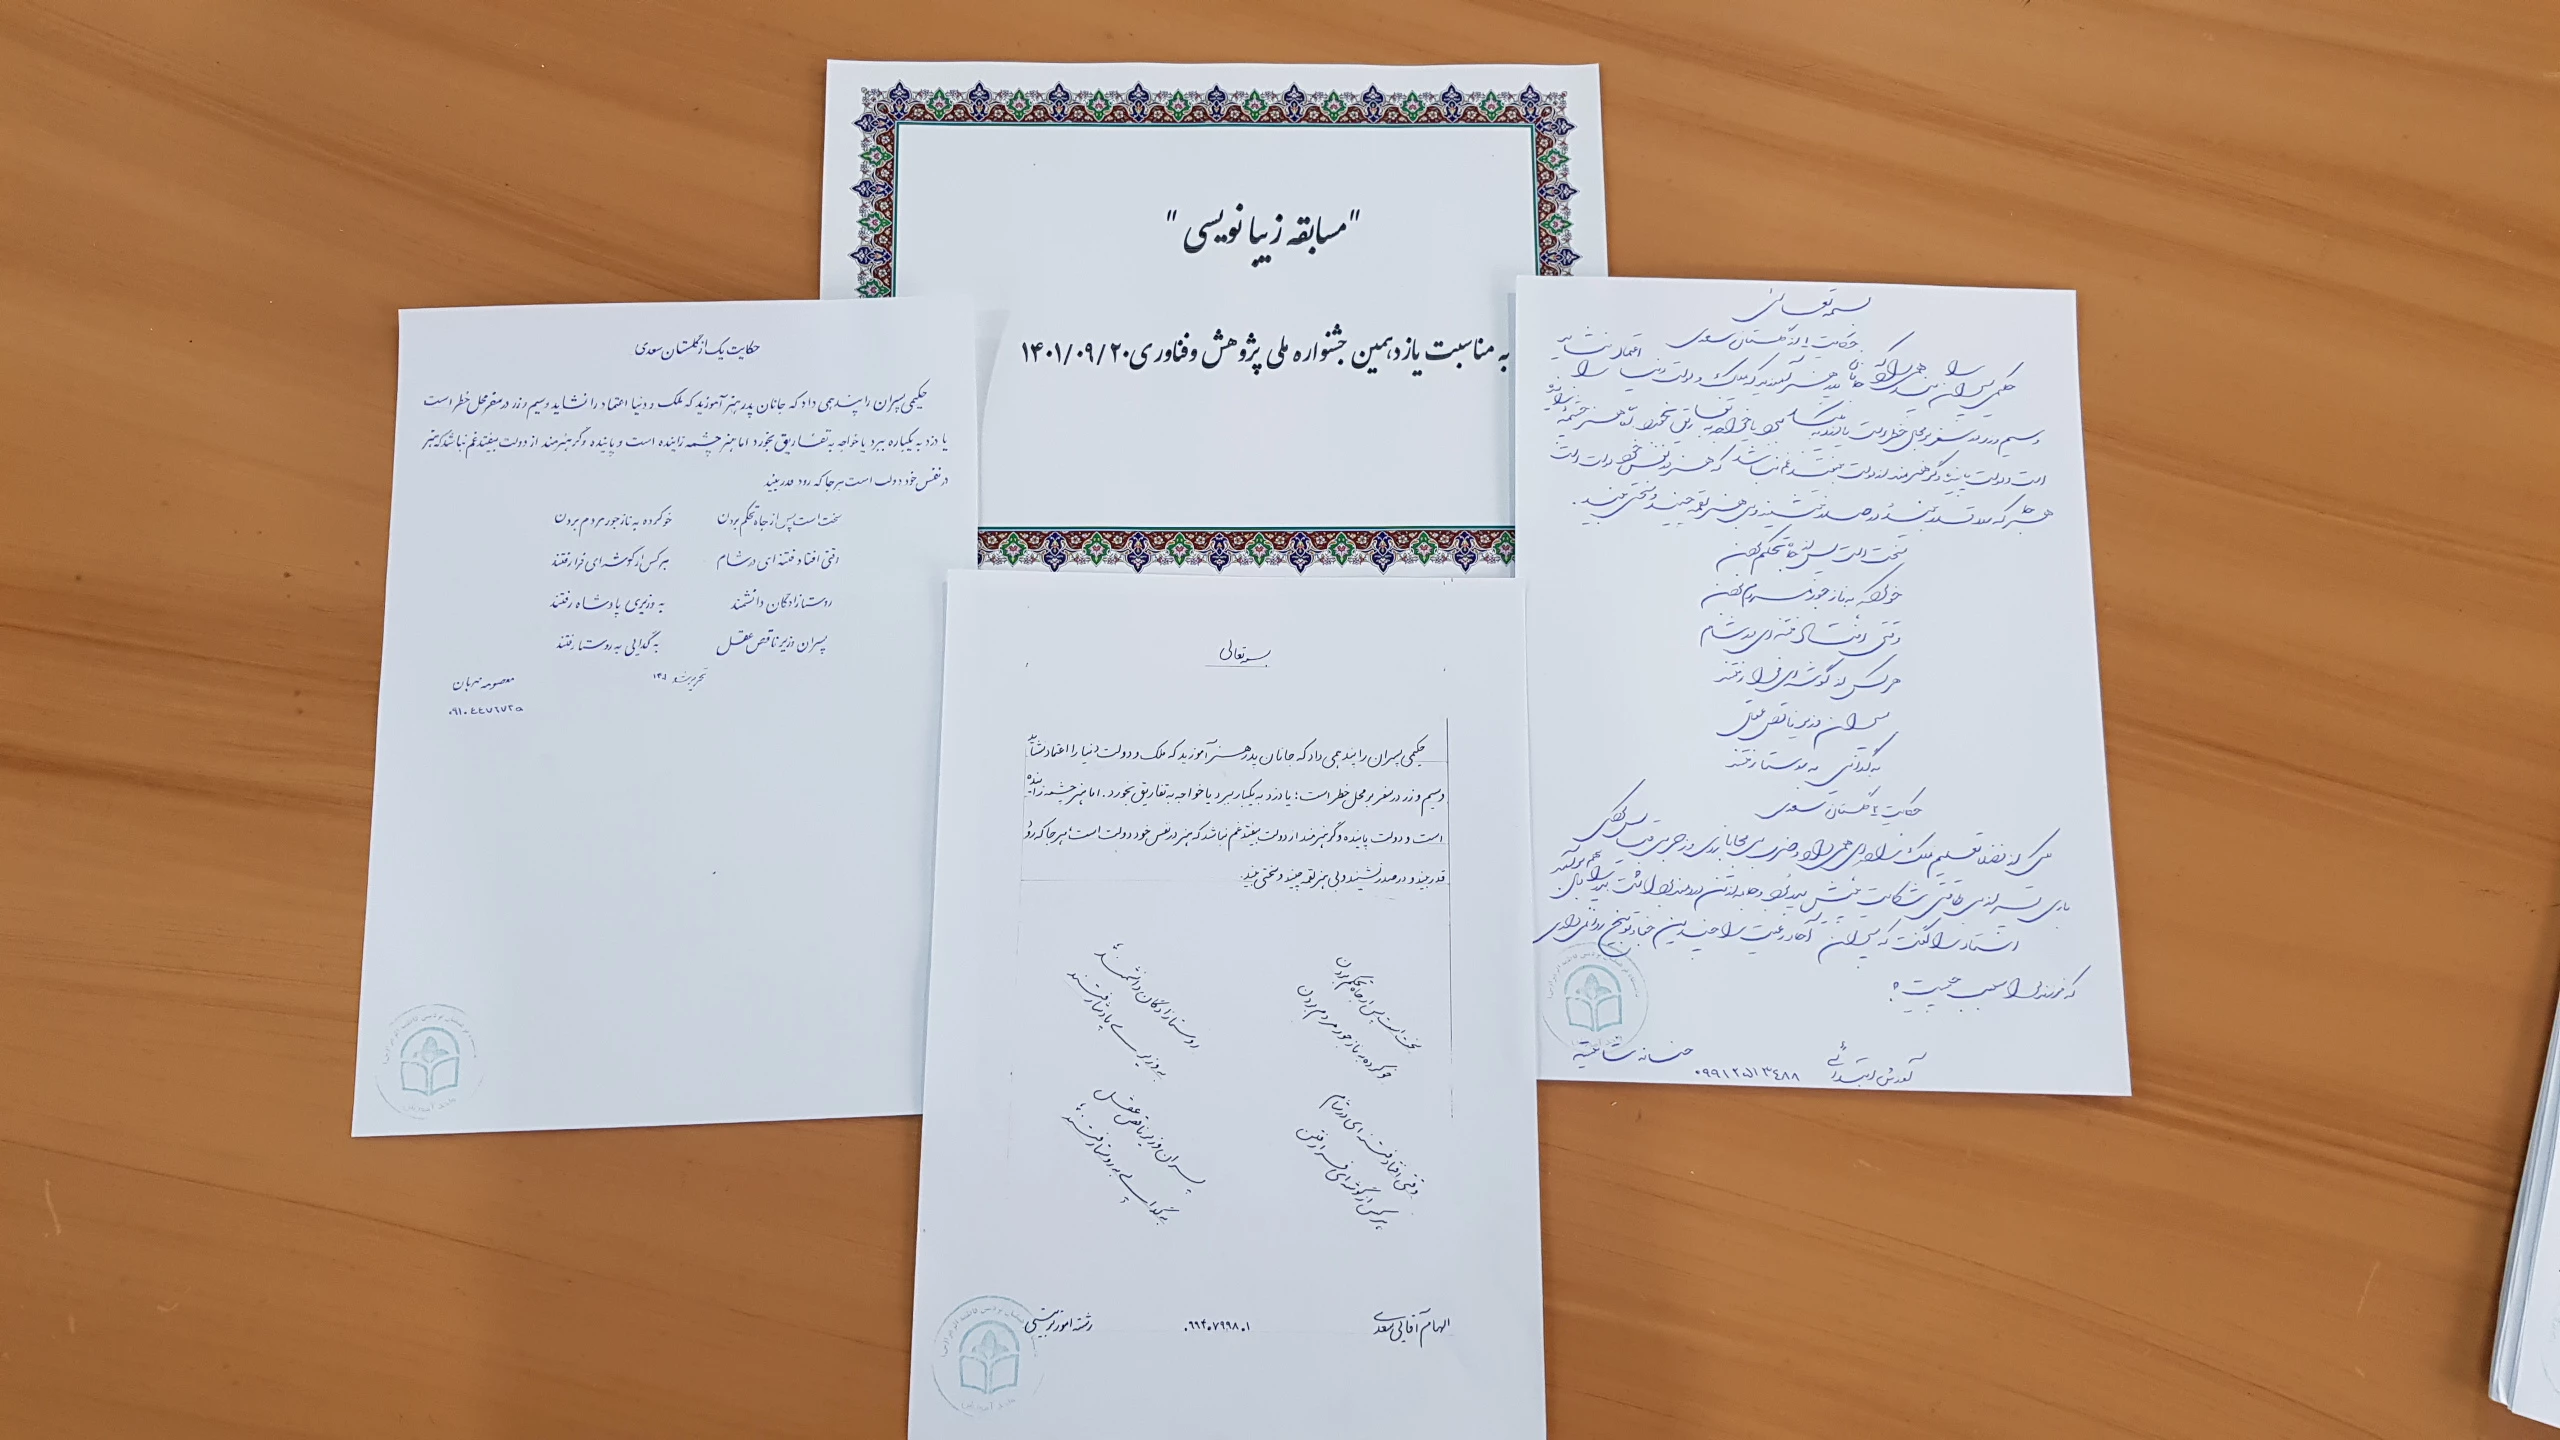 "مسابقه زیبا نویسی"
به مناسبت یازدهمین جشنواره ملی پژوهش و فناوری ۱۴۰۱/۰۹/۲۰
بسمه تعالی
حکایت ۱ از گلستان سعدی
حکیمی پسران را پند همی داد که جانان پدر هنر آموزید که ملک و دولت دنیا را اعتماد نشاید
و سیم و زر در سفر بر محل خطر
است و دولت پاینده وگر هنرمند از دولت بیفتد غم نباشد که هنر در نفس خود دولت است
هر جا که رود قدر بیند و در صدر نشیند و بی هنر لقمه چیند و سختی بیند.
سخت است پس از جاه تحکم بردن
خو کرده به ناز جور مردم بردن
وقتی افتاد فتنه ای در شام
هر کس از گوشه ای فرا رفتند
پسران وزیر ناقص عقل
به گدایی به روستا رفتند
حکایت ۴ گلستان سعدی
استاد را گفت که پسران آحاد رعیت را چندین جفا و توبیخ روا نمی داری
که فرزند مرا سبب چیست؟
آموزش ابتدائی
۰۹۹۱۲۵۱۳۴۸۸
حکایت یک از گلستان سعدی
حکیمی پسران را پند همی داد که جانان پدر هنر آموزید که ملک و دنیا اعتماد را نشاید و سیم و زر در سفر محل خطر است
یا دزد به یکباره ببرد یا خواجه به تفاریق بخورد اما هنر چشمه زاینده است و پاینده وگر هنرمند از دولت بیفتد غم نباشد که هنر
در نفس خود دولت است هر جا که رود قدر بیند
سخت است پس از جاه تحکم بردن خو کرده به ناز جور مردم بردن
وقتی افتاد فتنه ای در شام هر کس از گوشه ای فرا رفتند
روستازادگان دانشمند به وزیری پادشاه رفتند
پسران وزیر ناقص عقل به گدایی به روستا رفتند
تحریر شد ۱۴۰۱
معصومه مهربان
بسمه تعالی
حکیمی پسران را پند همی داد که جانان پدر هنر آموزید که ملک و دولت دنیا را اعتماد نشاید
و سیم و زر در سفر بر محل خطر است؛ یا دزد به یکبار ببرد یا خواجه به تفاریق بخورد. اما هنر چشمه زاینده
است و دولت پاینده وگر هنرمند از دولت بیفتد غم نباشد که هنر در نفس خود دولت است؛ هر جا که رود
قدر بیند و در صدر نشیند و بی هنر لقمه چیند و سختی بیند.
سخت است پس از جاه تحکم بردن
خو کرده به ناز جور مردم بردن
روستازادگان دانشمند
به وزیری پادشا رفتند
وقتی افتاد فتنه ای در شام
هر کس از گوشه ای فرا رفتن
پسران وزیر ناقص عقل
به گدایی به روستا رفتند
الهام آقایی سعدی
۰۹۹۴۰۷۹۹۸۰۱
رشته امور تربیتی